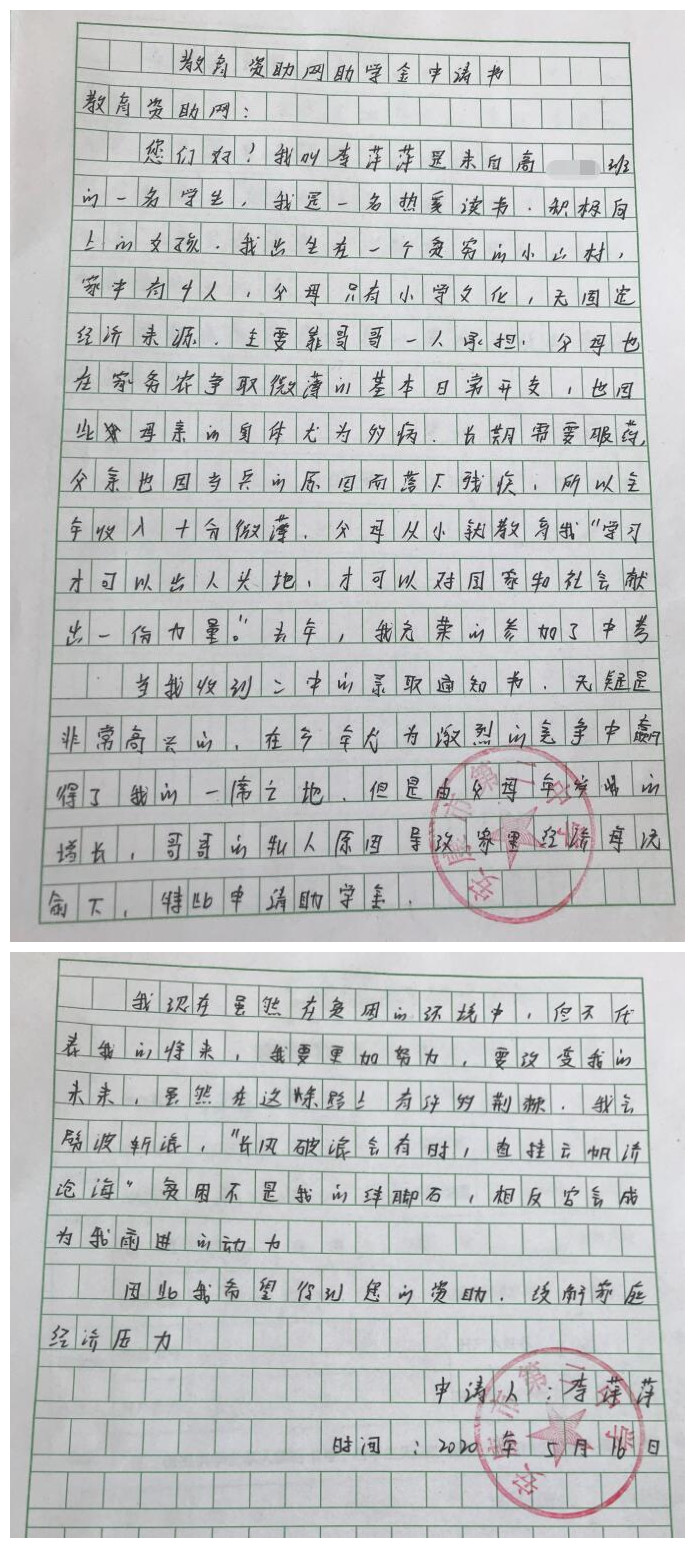 教育资助网助学金申请书
教育资助网:
您们好!我叫李萍萍是来自高 班
的一名学生,我是一名热爱读书.积极向
上的女孩.我出生在一个贫穷的小山村,
家中有4人,父母只有小学文化,无固定
经济来源.主要靠哥哥一人承担.父母也
在家务农争取微薄的基本日常开支,也因
此母亲的身体尤为的病.长期需要服药,
父亲也因当兵的原因而落下残疾,所以全
年收入十分微薄.父母从小就教育我“学习
才可以出人头地,才可以对国家和社会献
出一份力量。”去年,我光荣的参加了中考
当我收到二中的录取通知书.无疑是
非常高兴的,在今年尤为激烈的竞争中赢
得了我的一席之地.但是由父母年岁的
增长,哥哥的私人原因导致家里经济每况
俞下,特此申请助学金.
我现在虽然在贫困的环境中,但不代
表我的将来,我要更加努力,要改变我的
未来,虽然在这条路上有许多荆棘.我会
劈波斩浪,“长风破浪会有时,直挂云帆济
沧海”贫困不是我的绊脚石,相反它会成
为我前进的动力
因此我希望得到您的资助.缓解家庭
经济压力
申请人:李萍萍
时间:2020年5月16日
安康市第二中学